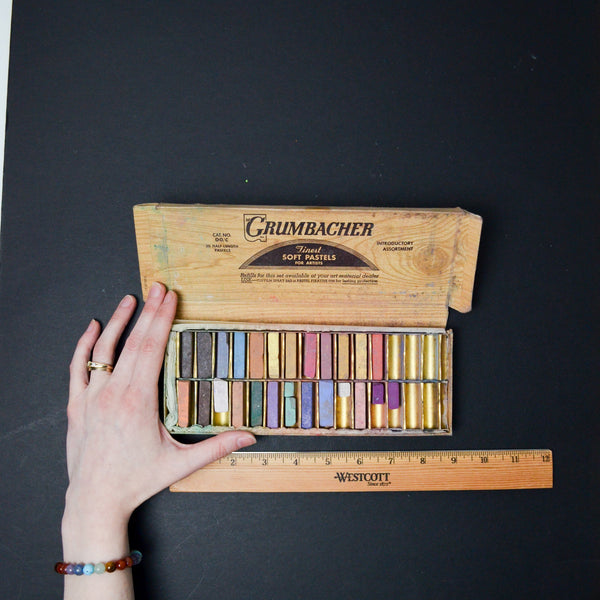 M. GRUMBACHER
CAT. NO.
00/C
30 HALF LENGTH
PASTELS
Finest
SOFT PASTELS
FOR ARTISTS
INTRODUCTORY
ASSORTMENT
Refills for this set available at your art material dealer
2 3 4 5 6 7 8 9 10 11 12
WESTCOTT
Since 1872